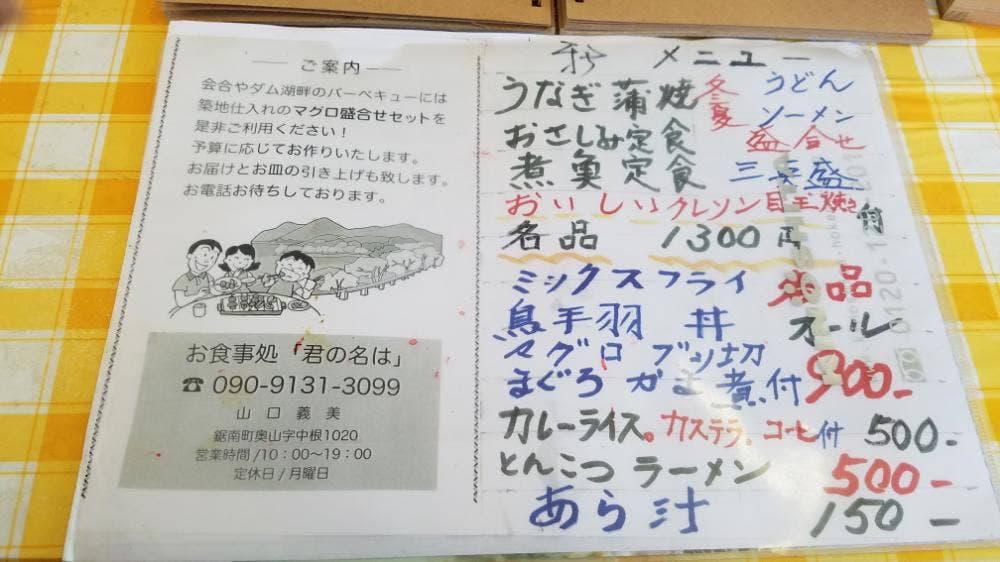 ご案内
会合やダム湖畔のバーベキューには
築地仕入れのマグロ盛合せセットを
是非ご利用ください！
予算に応じてお作りいたします。
お届けとお皿の引き上げも致します。
お電話お待ちしております。
お食事処「君の名は」
☎ 090-9131-3099
山口義美
鋸南町奥山字中根1020
営業時間/10：00〜19：00
定休日/月曜日
メニュー
うなぎ蒲焼 冬 うどん
夏 ソーメン
おさしみ定食 盛合せ
煮魚定食 三点盛
おいしいクレソン目玉焼き付
名品 1300円
ミックスフライ 単品
鳥手羽 丼 オール
マグロ ブツ切
まぐろ かま煮付 900-
カレーライス。カステラ。コーヒ付 500-
とんこつ ラーメン 500-
あら汁 150-
0120-1